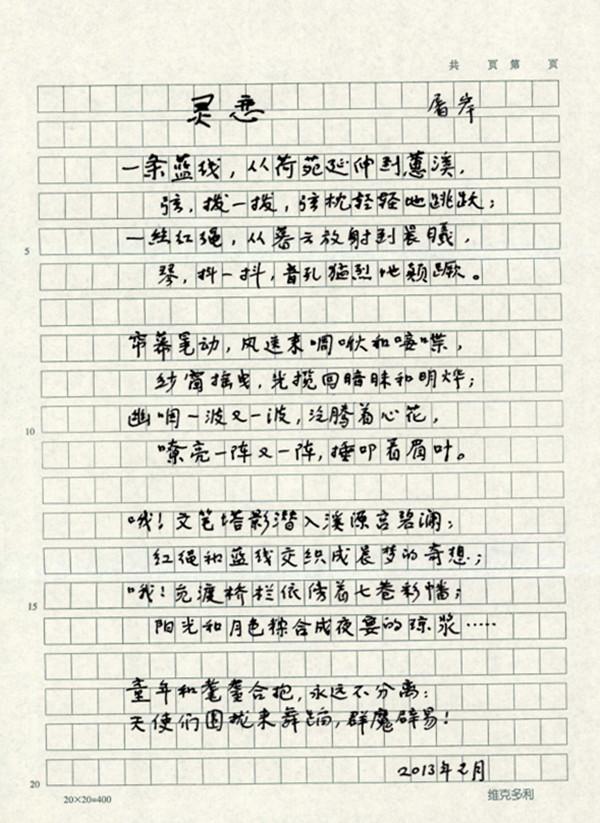 共 页 第 页
灵恋
屠岸
一条蓝线，从荷苑延伸到蕙溪，
弦，拨一拨，弦枕轻轻地跳跃；
5
一丝红绳，从暮云放射到晨曦，
琴，抖一抖，音孔猛烈地颠蹶。
帘幕毫动，风送来啁啾和唼喋，
纱窗摇曳，光揽回暗昧和明烨；
10
幽咽一波又一波，泛腾着心花，
嘹亮一阵又一阵，捶叩着眉叶。
哦！文笔塔影潜入溪源宫碧澜；
红绳和蓝线交织成晨梦的奇想；
15
哦！ 渡桥栏依傍着七巷彩幡；
阳光和月色综合成夜宴的琼浆……
童年和耄耋合抱，永远不分离：
天使们围拢来舞蹈，群魔辟易！
2013年元月
20
20×20=400
维克多利